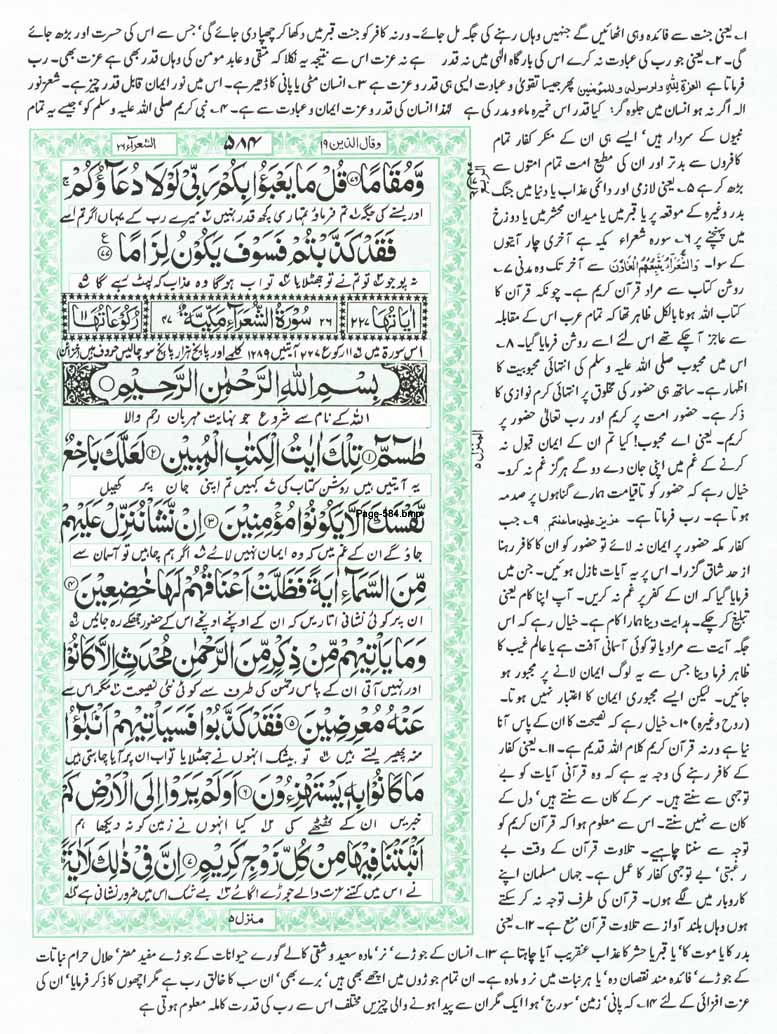 ۱۔ یعنی جنت سے فائدہ وہی اٹھائیں گے جنہیں وہاں رہنے کی جگہ مل جائے۔ ورنہ کافر کو جنت قبر میں دکھا کر چھپا دی جائے گی‘ جس سے اس کی حسرت اور بڑھ جائے
گی۔ ۲۔ یعنی جو رب کی عبادت نہ کرے اس کی بارگاہ الٰہی میں نہ قدر ہے نہ عزت اس سے نتیجہ یہ نکلا کہ متقی و عابد مومن کی وہاں قدر بھی ہے عزت بھی۔ رب
فرماتا ہے العزۃ للہ ولرسولہ وللمؤمنین پھر جیسا تقویٰ و عبادت ایسی ہی قدر و عزت ہے ۳۔ انسان مٹی یا پانی کا ڈھیر ہے۔ اس میں نور ایمان قابل قدر چیز ہے۔ شعر نور
الہ اگر نہ ہو انسان میں جلوہ گر؛ کیا قدر اس خمیرہ ماء و مدر کی ہے لہٰذا انسان کی قدر و عزت ایمان و عبادت سے ہے۔ ۴۔ نبی کریم صلی اللہ علیہ وسلم کو‘ جیسے یہ تمام
الشعراء ۲۶
۵۸۴
وقال الذین ۱۹
وَّمُقَامًا ﴿۷۶﴾ قُلْ مَا يَعْبَؤُا بِكُمْ رَبِّيْ لَوْلَا دُعَآؤُكُمْ ۚ
اور بسنے کی جگہ تم فرماؤ تمہاری کچھ قدر نہیں میرے رب کے یہاں اگر تم اسے
فَقَدْ كَذَّبْتُمْ فَسَوْفَ يَكُوْنُ لِزَامًا ﴿۷۷﴾
نہ پوجو تو تم نے تو جھٹلایا تو اب ہو گا وہ عذاب کہ لپٹ رہے گا
اٰيَاتُهَا ۲۲۷ ۲۶ سُوْرَةُ الشُّعَرَآءِ مَكِّيَّةٌ ۴۷ رُكُوْعَاتُهَا ۱۱
اس سورۃ میں ۱۱ رکوع ۲۲۷ آیتیں ۱۲۸۹ کلمے اور پانچ ہزار پانچ سو چالیس حروف ہیں (خزائن)
بِسْمِ اللّٰهِ الرَّحْمٰنِ الرَّحِيْمِ
اللہ کے نام سے شروع جو نہایت مہربان رحم والا
طٰسٓمّٓ ﴿۱﴾ تِلْكَ اٰيٰتُ الْكِتٰبِ الْمُبِيْنِ ﴿۲﴾ لَعَلَّكَ بَاخِعٌ
یہ آیتیں ہیں روشن کتاب کی کہیں تم اپنی جان پر کھیل
نَّفْسَكَ اَلَّا يَكُوْنُوْا مُؤْمِنِيْنَ ﴿۳﴾ اِنْ نَّشَاْ نُنَزِّلْ عَلَيْهِمْ
Page-584.bmp
جاؤ گے ان کے غم میں کہ وہ ایمان نہیں لائے اگر ہم چاہیں تو آسمان سے
مِّنَ السَّمَآءِ اٰيَةً فَظَلَّتْ اَعْنَاقُهُمْ لَهَا خٰضِعِيْنَ ﴿۴﴾
ان پر کوئی نشانی اتاریں کہ ان کے اونچے اونچے اس کے حضور جھکے رہ جائیں
وَمَا يَاْتِيْهِمْ مِّنْ ذِكْرٍ مِّنَ الرَّحْمٰنِ مُحْدَثٍ اِلَّا كَانُوْا
اور نہیں آتی ان کے پاس رحمٰن کی طرف سے کوئی نئی نصیحت مگر اس سے
عَنْهُ مُعْرِضِيْنَ ﴿۵﴾ فَقَدْ كَذَّبُوْا فَسَيَاْتِيْهِمْ اَنْۢبٰٓؤُا
منہ پھیر لیتے ہیں تو بیشک انہوں نے جھٹلایا تو اب ان پر آیا چاہتی ہیں
مَا كَانُوْا بِهٖ يَسْتَهْزِءُوْنَ ﴿۶﴾ اَوَلَمْ يَرَوْا اِلَى الْاَرْضِ كَمْ
خبریں ان کے ٹھٹھے کی کیا انہوں نے زمین کو نہ دیکھا ہم
اَنْۢبَتْنَا فِيْهَا مِنْ كُلِّ زَوْجٍ كَرِيْمٍ ﴿۷﴾ اِنَّ فِيْ ذٰلِكَ لَاٰيَةً
نے اس میں کتنے عزت والے جوڑے اگائے بے شک اس میں ضرور نشانی ہے
منزل ۵
المنزل ۵
نبیوں کے سردار ہیں‘ ایسے ہی ان کے منکر کفار تمام
کافروں سے بدتر اور ان کی مطیع امت تمام امتوں سے
بڑھ کر ہے ۵۔ یعنی لازمی اور دائمی عذاب یا دنیا میں جنگ
بدر وغیرہ کے موقعہ پر یا قبر میں یا میدان محشر میں یا دوزخ
میں پہنچنے پر ۶۔ سورہ شعراء مکیہ ہے آخری چار آیتوں
کے سوا۔ والشعراء یتبعھم الغاون سے آخر تک وہ مدنی ۷۔
روشن کتاب سے مراد قرآن کریم ہے۔ چونکہ قرآن کا
کتاب اللہ ہونا بالکل ظاہر تھا کہ تمام عرب اس کے مقابلہ
سے عاجز آ چکے تھے اس لئے اسے روشن فرمایا گیا۔ ۸۔
اس میں محبوب صلی اللہ علیہ وسلم کی انتہائی محبوبیت کا
اظہار ہے۔ ساتھ ہی حضور کی مخلوق پر انتہائی کرم نوازی کا
ذکر ہے۔ حضور امت پر کریم اور رب تعالیٰ حضور پر
کریم۔ یعنی اے محبوب! کیا تم ان کے ایمان قبول نہ
کرنے کے غم میں اپنی جان دے دو گے ہرگز غم نہ کرو۔
خیال رہے کہ حضور کو تاقیامت ہمارے گناہوں پر صدمہ
ہوتا ہے۔ رب فرماتا ہے۔ عزیز علیہ ماعنتم ۹۔ جب
کفار مکہ حضور پر ایمان نہ لائے تو حضور کو ان کا کافر رہنا
از حد شاق گزرا۔ اس پر یہ آیات نازل ہوئیں۔ جن میں
فرمایا گیا کہ ان کے کفر پر غم نہ کریں۔ آپ اپنا کام یعنی
تبلیغ کر چکے۔ ہدایت دینا ہمارا کام ہے۔ خیال رہے کہ اس
جگہ آیت سے مراد یا تو کوئی آسمانی آفت ہے یا عالم غیب کا
ظاہر فرما دینا جس سے یہ لوگ ایمان لانے پر مجبور ہو
جائیں۔ لیکن ایسے مجبوری ایمان کا اعتبار نہیں ہوتا۔
(روح وغیرہ) ۱۰۔ خیال رہے کہ نصیحت کا ان کے پاس آنا
نیا ہے ورنہ قرآن کریم کلام اللہ قدیم ہے۔ ۱۱۔ یعنی کفار
کے کافر رہنے کی وجہ یہ ہے کہ وہ قرآنی آیات کو بے
توجہی سے سنتے ہیں۔ سر کے کان سے سنتے ہیں‘ دل کے
کان سے نہیں سنتے۔ اس سے معلوم ہوا کہ قرآن کریم کو
توجہ سے سننا چاہیے۔ تلاوت قرآن کے وقت بے
رغبتی‘ بے توجہی کفار کا عمل ہے۔ جہاں مسلمان اپنے
کاروبار میں لگے ہوں۔ قرآن کی طرف توجہ نہ کر سکتے
ہوں وہاں بلند آواز سے تلاوت قرآن منع ہے۔ ۱۲۔ یعنی
بدر کا یا موت کا‘ یا قبر یا حشر کا عذاب عنقریب آیا چاہتا ہے ۱۳۔ انسان کے جوڑے‘ نر‘ مادہ سعید و شقی کالے گورے حیوانات کے جوڑے مفید مضر‘ حلال حرام نباتات
کے جوڑے‘ فائدہ مند نقصان دہ‘ یا ہر نبات میں نر و مادہ ہے۔ ان تمام جوڑوں میں اچھے بھی ہیں‘ برے بھی‘ ان سب کا خالق رب ہے مگر اچھوں کا ذکر فرمایا‘ ان کی
عزت افزائی کے لئے ۱۴۔ کہ پانی‘ زمین‘ سورج‘ ہوا ایک مگر ان سے پیدا ہونے والی چیزیں مختلف اس سے رب کی قدرت کاملہ معلوم ہوتی ہے